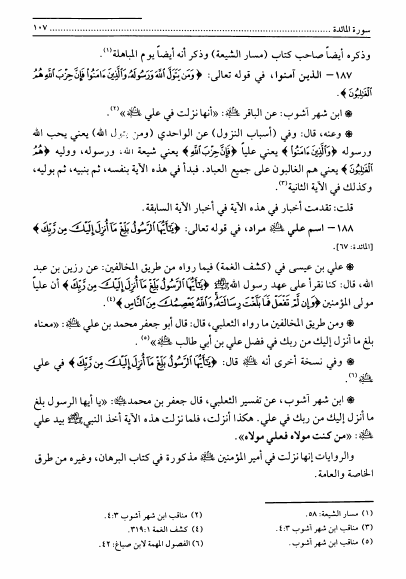 سورة المائدة ................................................ ١٠٧
وذكره أيضاً صاحب كتاب (مسار الشيعة) وذكر أنه أيضاً يوم المباهلة(١).
١٨٧- الذين آمنوا، في قوله تعالى: ﴿وَمَن يَتَوَلَّ اللَّهَ وَرَسُولَهُ وَالَّذِينَ ءَامَنُوا فَإِنَّ حِزْبَ اللَّهِ هُمُ
الْغَالِبُونَ﴾.
ابن شهر آشوب: عن الباقر ﷺ: «أنها نزلت في علي ﷺ»(٢).
وعنه، قال: وفي (أسباب النزول) عن الواحدي (ومن يتول الله) يعني يحب الله
ورسوله ﴿وَالَّذِينَ ءَامَنُوا﴾ يعني علياً ﴿فَإِنَّ حِزْبَ اللَّهِ﴾ يعني شيعة الله، ورسوله، ووليه ﴿هُمُ
الْغَالِبُونَ﴾ يعني هم الغالبون على جميع العباد. فبدأ في هذه الآية بنفسه، ثم بنبيه، ثم بوليه،
وكذلك في الآية الثانية(٣).
قلت: تقدمت أخبار في هذه الآية في أخبار الآية السابقة.
١٨٨- اسم علي مراد، في قوله تعالى: ﴿يَٰٓأَيُّهَا الرَّسُولُ بَلِّغْ مَآ أُنزِلَ إِلَيْكَ مِن رَّبِّكَ﴾
[المائدة: ٦٧].
علي بن عيسى في (كشف الغمة) فيما رواه من طريق المخالفين: عن رزين بن عبد
الله، قال: كنا نقرأ على عهد رسول الله ﷺ ﴿يَٰٓأَيُّهَا الرَّسُولُ بَلِّغْ مَآ أُنزِلَ إِلَيْكَ مِن رَّبِّكَ﴾ أن علياً
مولى المؤمنين ﴿وَإِن لَّمْ تَفْعَلْ فَمَا بَلَّغْتَ رِسَالَتَهُ وَاللَّهُ يَعْصِمُكَ مِنَ النَّاسِ﴾(٤).
ومن طريق المخالفين ما رواه الثعلبي، قال: قال أبو جعفر محمد بن علي: «معناه
بلغ ما أنزل إليك من ربك في فضل علي بن أبي طالب»(٥).
وفي نسخة أخرى أنه قال: ﴿يَٰٓأَيُّهَا الرَّسُولُ بَلِّغْ مَآ أُنزِلَ إِلَيْكَ مِن رَّبِّكَ﴾ في علي
(٦).
ابن شهر آشوب، عن تفسير الثعلبي، قال جعفر بن محمد: «يا أيها الرسول بلغ
ما أنزل إليك من ربك في علي. هكذا أنزلت، فلما نزلت هذه الآية أخذ النبي ﷺ بيد علي
: «من كنت مولاه فعلي مولاه».
والروايات إنها نزلت في أمير المؤمنين مذكورة في كتاب البرهان، وغيره من طرق
الخاصة والعامة.
(١) مسار الشيعة: ٥٨.
(٢) مناقب ابن شهر آشوب ٤:٣.
(٣) مناقب ابن شهر آشوب ٤:٣.
(٤) كشف الغمة ٣١٩:١.
(٥) مناقب ابن شهر آشوب.
(٦) الفصول المهمة لابن صباغ: ٤٢.